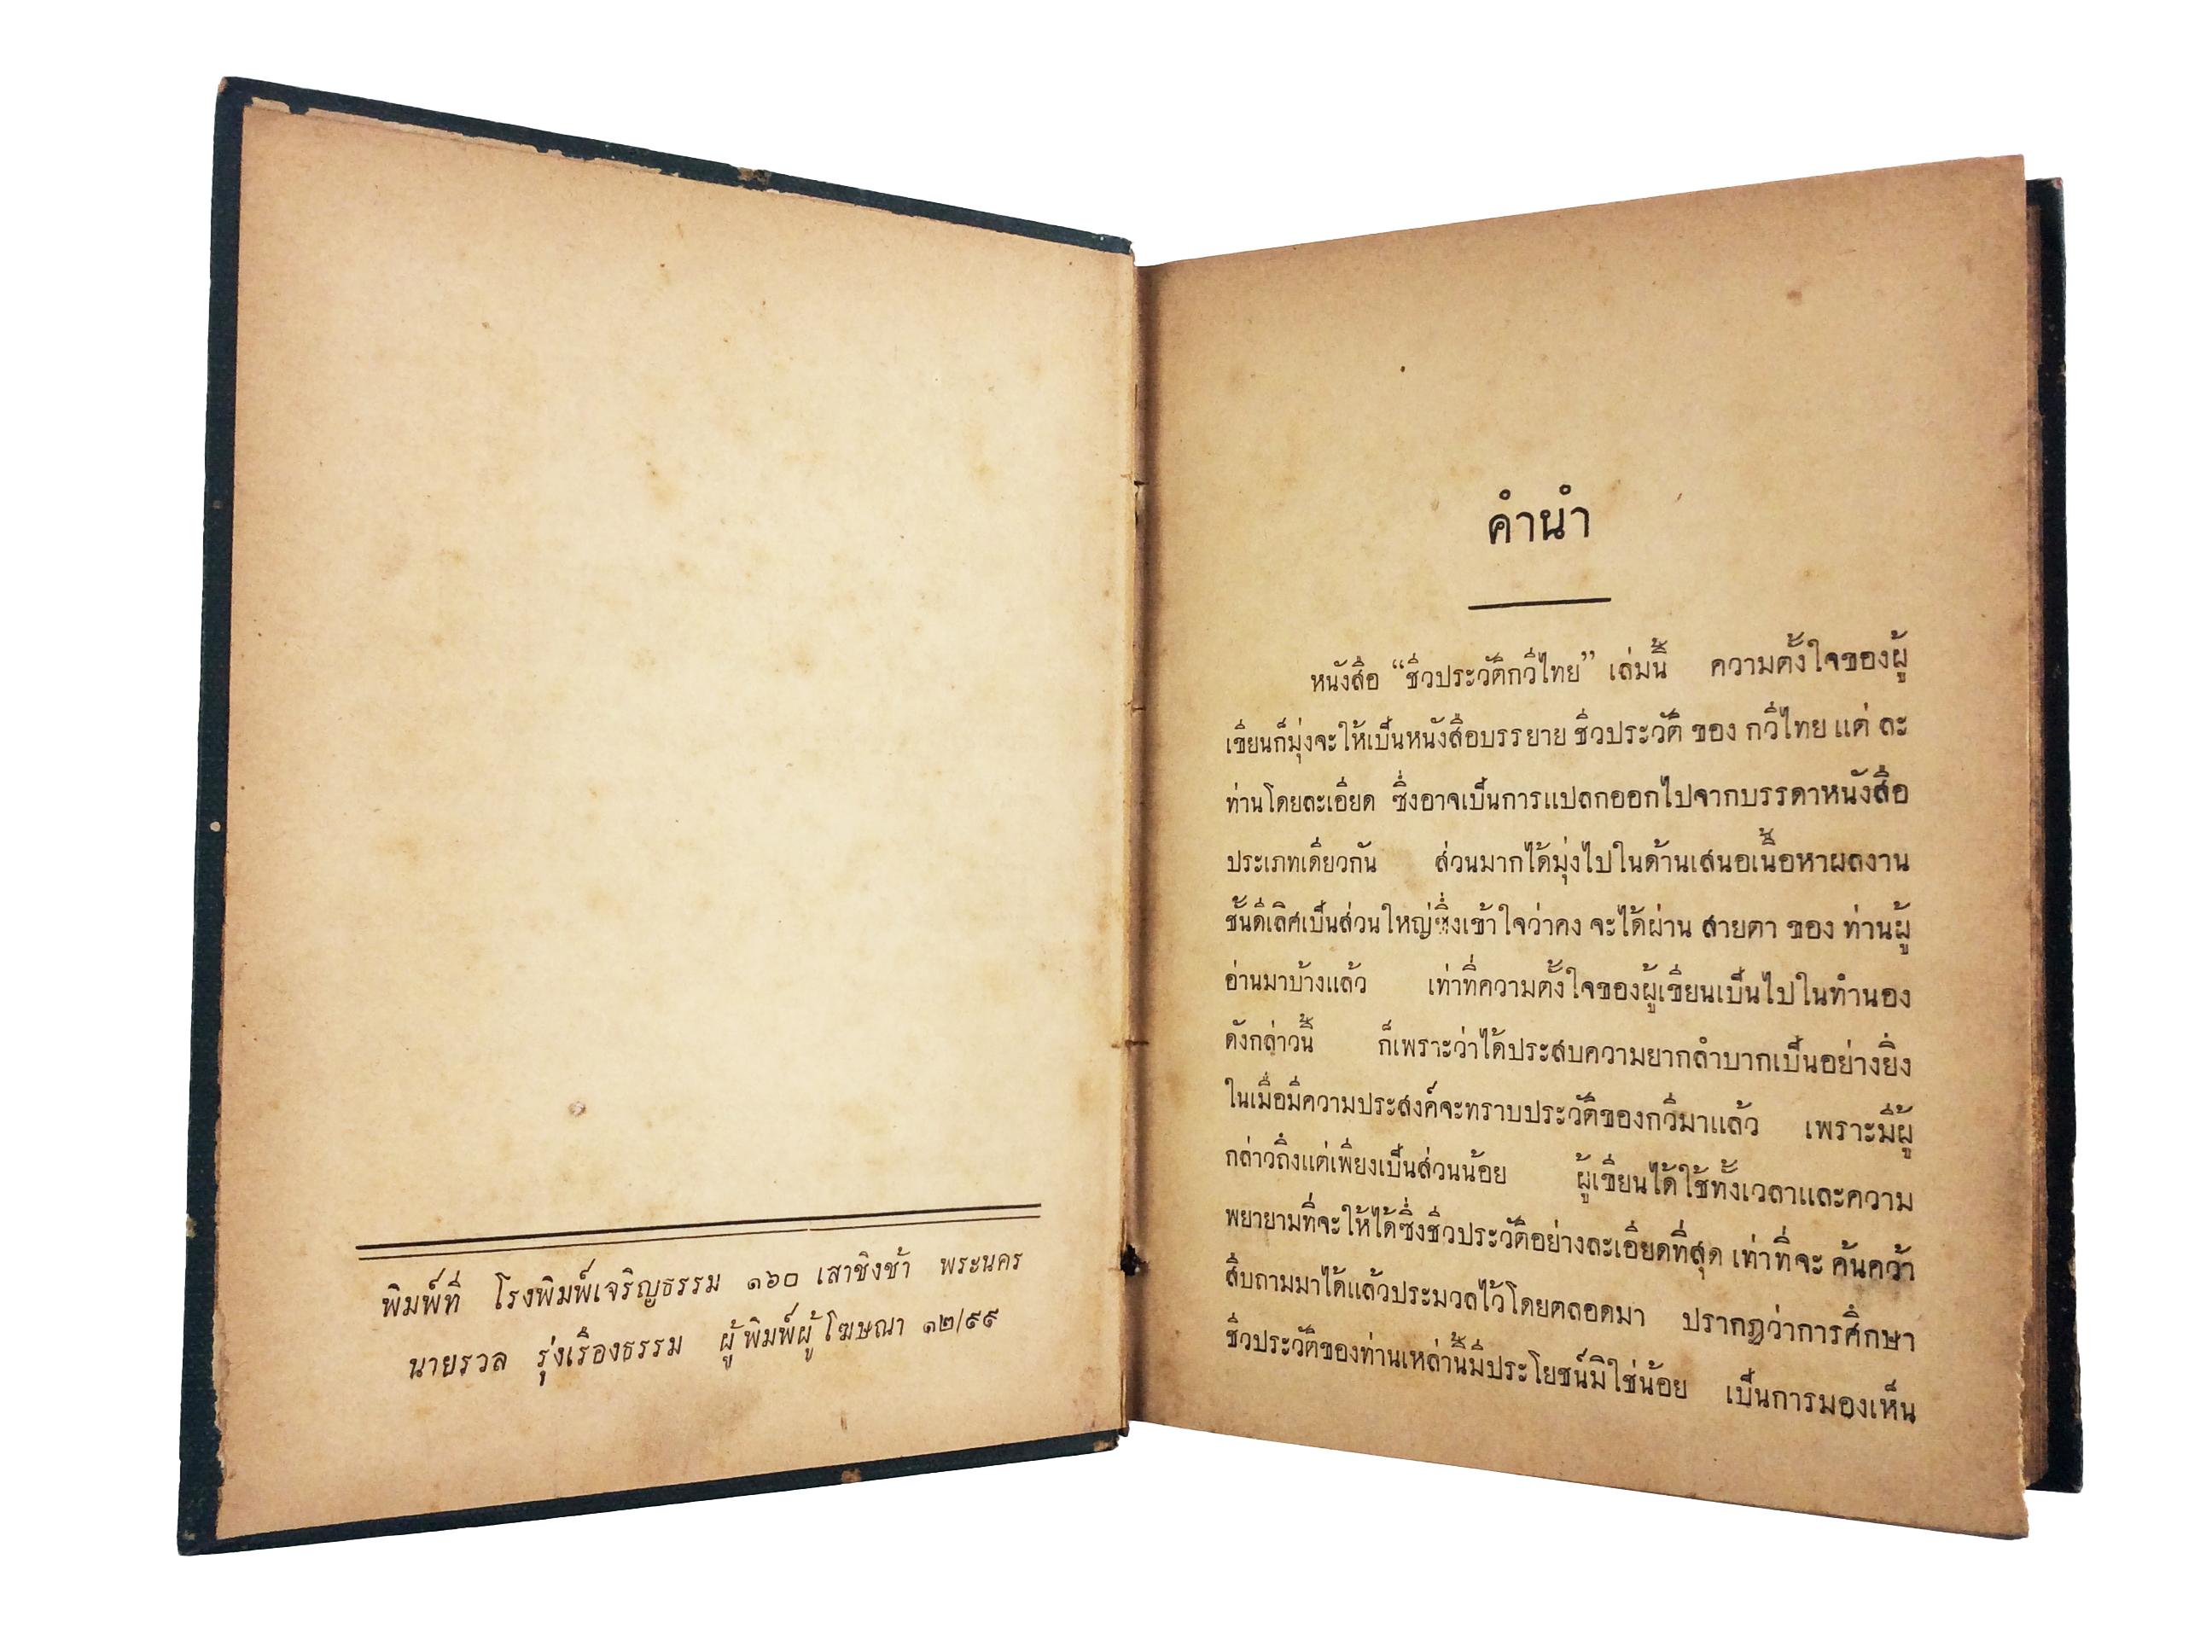 พิมพ์ที่ โรงพิมพ์เจริญธรรม ๑๖๐ เสาชิงช้า พระนคร
นายรวล รุ่งเรืองธรรม ผู้พิมพ์ผู้โฆษณา ๑๒/๙๙
คำนำ
หนังสือ “ชีวประวัติกวีไทย” เล่มนี้ ความตั้งใจของผู้
เขียนก็มุ่งจะให้เป็นหนังสือบรรยาย ชีวประวัติ ของ กวีไทย แต่ ละ
ท่านโดยละเอียด ซึ่งอาจเป็นการแปลกออกไปจากบรรดาหนังสือ
ประเภทเดียวกัน ส่วนมากได้มุ่งไปในด้านเสนอเนื้อหาผลงาน
ชั้นดีเลิศเป็นส่วนใหญ่ซึ่งเข้าใจว่าคง จะได้ผ่าน สายตา ของ ท่านผู้
อ่านมาบ้างแล้ว เท่าที่ความตั้งใจของผู้เขียนเป็นไปในทำนอง
ดังกล่าวนี้ ก็เพราะว่าได้ประสบความยากลำบากเป็นอย่างยิ่ง
ในเมื่อมีความประสงค์จะทราบประวัติของกวีมาแล้ว เพราะมีผู้
กล่าวถึงแต่เพียงเป็นส่วนน้อย ผู้เขียนได้ใช้ทั้งเวลาและความ
พยายามที่จะให้ได้ซึ่งชีวประวัติอย่างละเอียดที่สุด เท่าที่จะ ค้นคว้า
สืบถามมาได้แล้วประมวลไว้โดยตลอดมา ปรากฏว่าการศึกษา
ชีวประวัติของท่านเหล่านี้มีประโยชน์มิใช่น้อย เป็นการมองเห็น